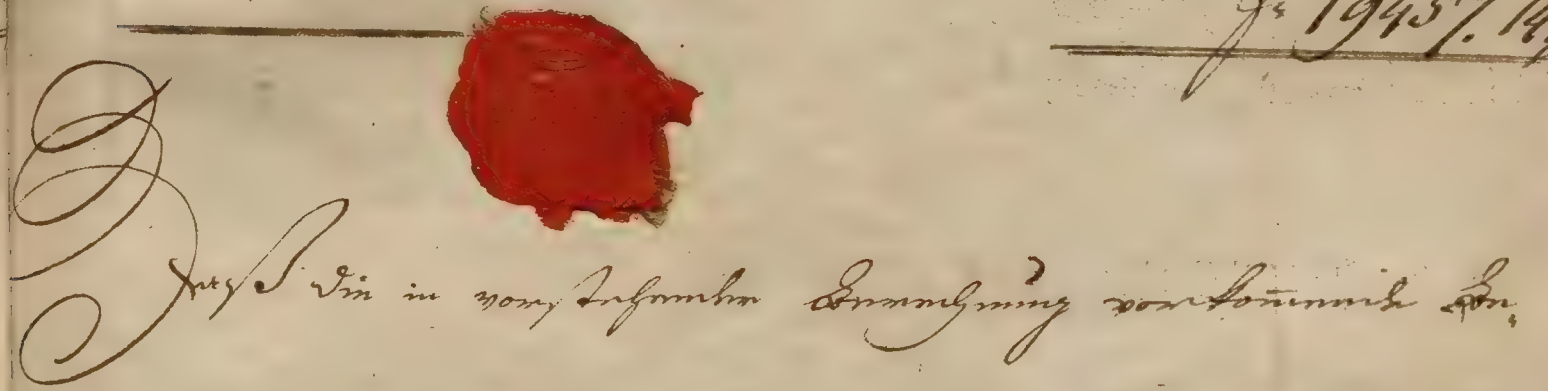 1945/. 14
Daß die in vorstehender Berechnung vorkom̅ende Be„